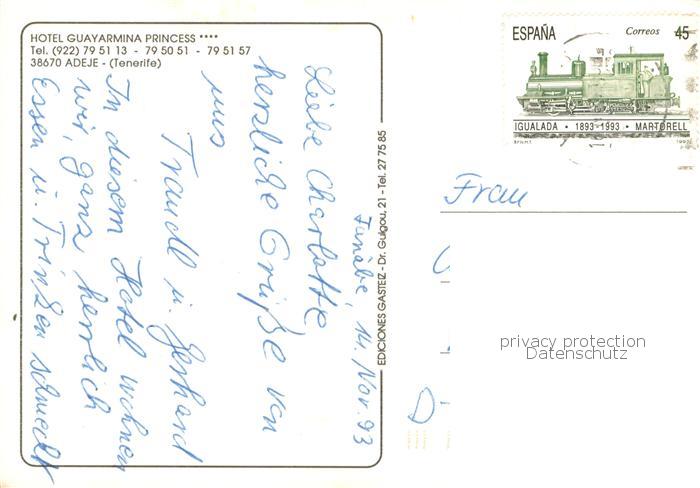 HOTEL GUAYARMINA PRINCESS ****
Tel. (922) 79 51 13 - 79 50 51 - 79 51 57
38670 ADEJE - (Tenerife)
Fañabe, 14. Nov. 93
Liebe Charlotte
herzliche Grüße von
uns
Traudl u. Gerhard
In diesem Hotel wohnen
wir, ganz herrlich
Essen u. Trinken schmeckt
EDICIONES GASTEIZ - Dr. Guigou, 21 - Tel. 27 75 85
ESPAÑA Correos 45
IGUALADA • 1893-1993 • MARTORELL
Frau
D
privacy protection
Datenschutz